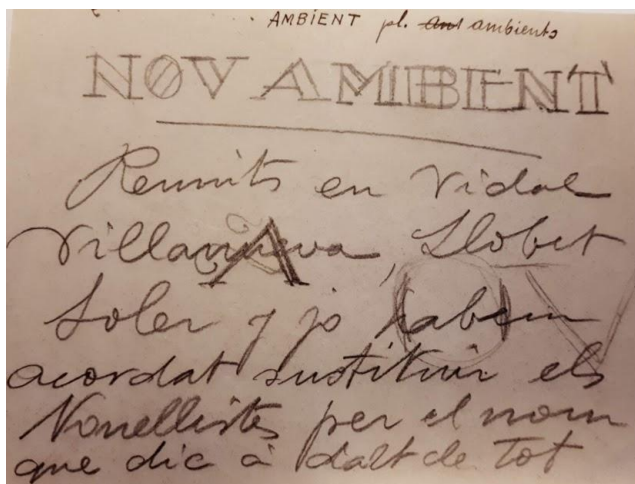 AMBIENT pl. ant ambients
NOV AMBIENT
Reunits en Vidal
Villanueva, Llobet
Soler y jo habem
acordat sustituir els
Nouellistes per el nom
que dic à dalt de tot
A
O V